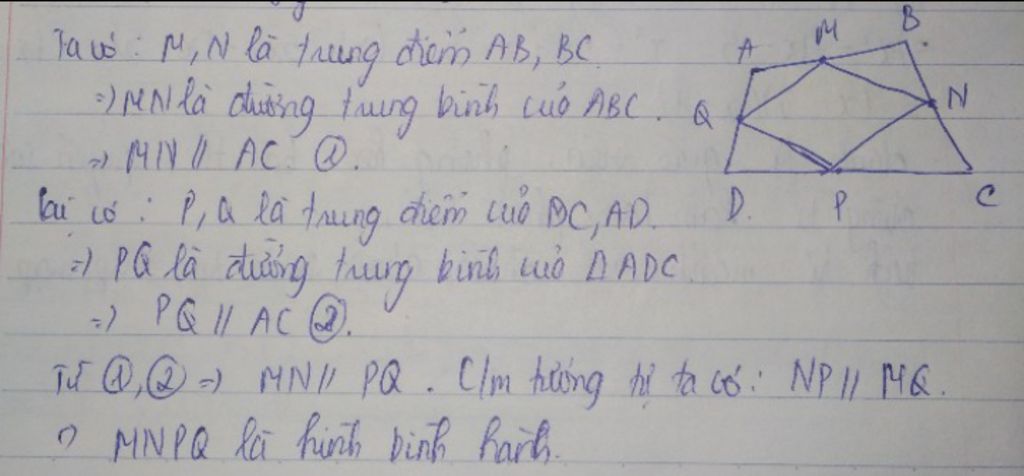 Ta có: M, N là trung điểm AB, BC.
=> MN là đường trung bình của ABC.
=> MN // AC ①.
Lại có: P, Q là trung điểm của DC, AD.
=> PQ là đường trung bình của Δ ADC
=> PQ // AC ②.
Từ ①, ② => MN // PQ. C/m tương tự ta có: NP // MQ.
=> MNPQ là hình bình hành.
A M B
Q N
D P C